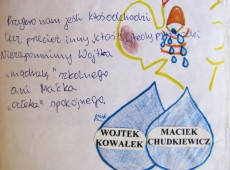 Przykro nam jeśli ktoś odchodzi
Lecz przecież inny ktoś wtedy przychodzi
Niezapomnimy Wojtka
"mądrali" szkolnego
ani Maćka
"człeka" spokojnego.
WOJTEK
KOWAŁEK
MACIEK
CHUDKIEWICZ